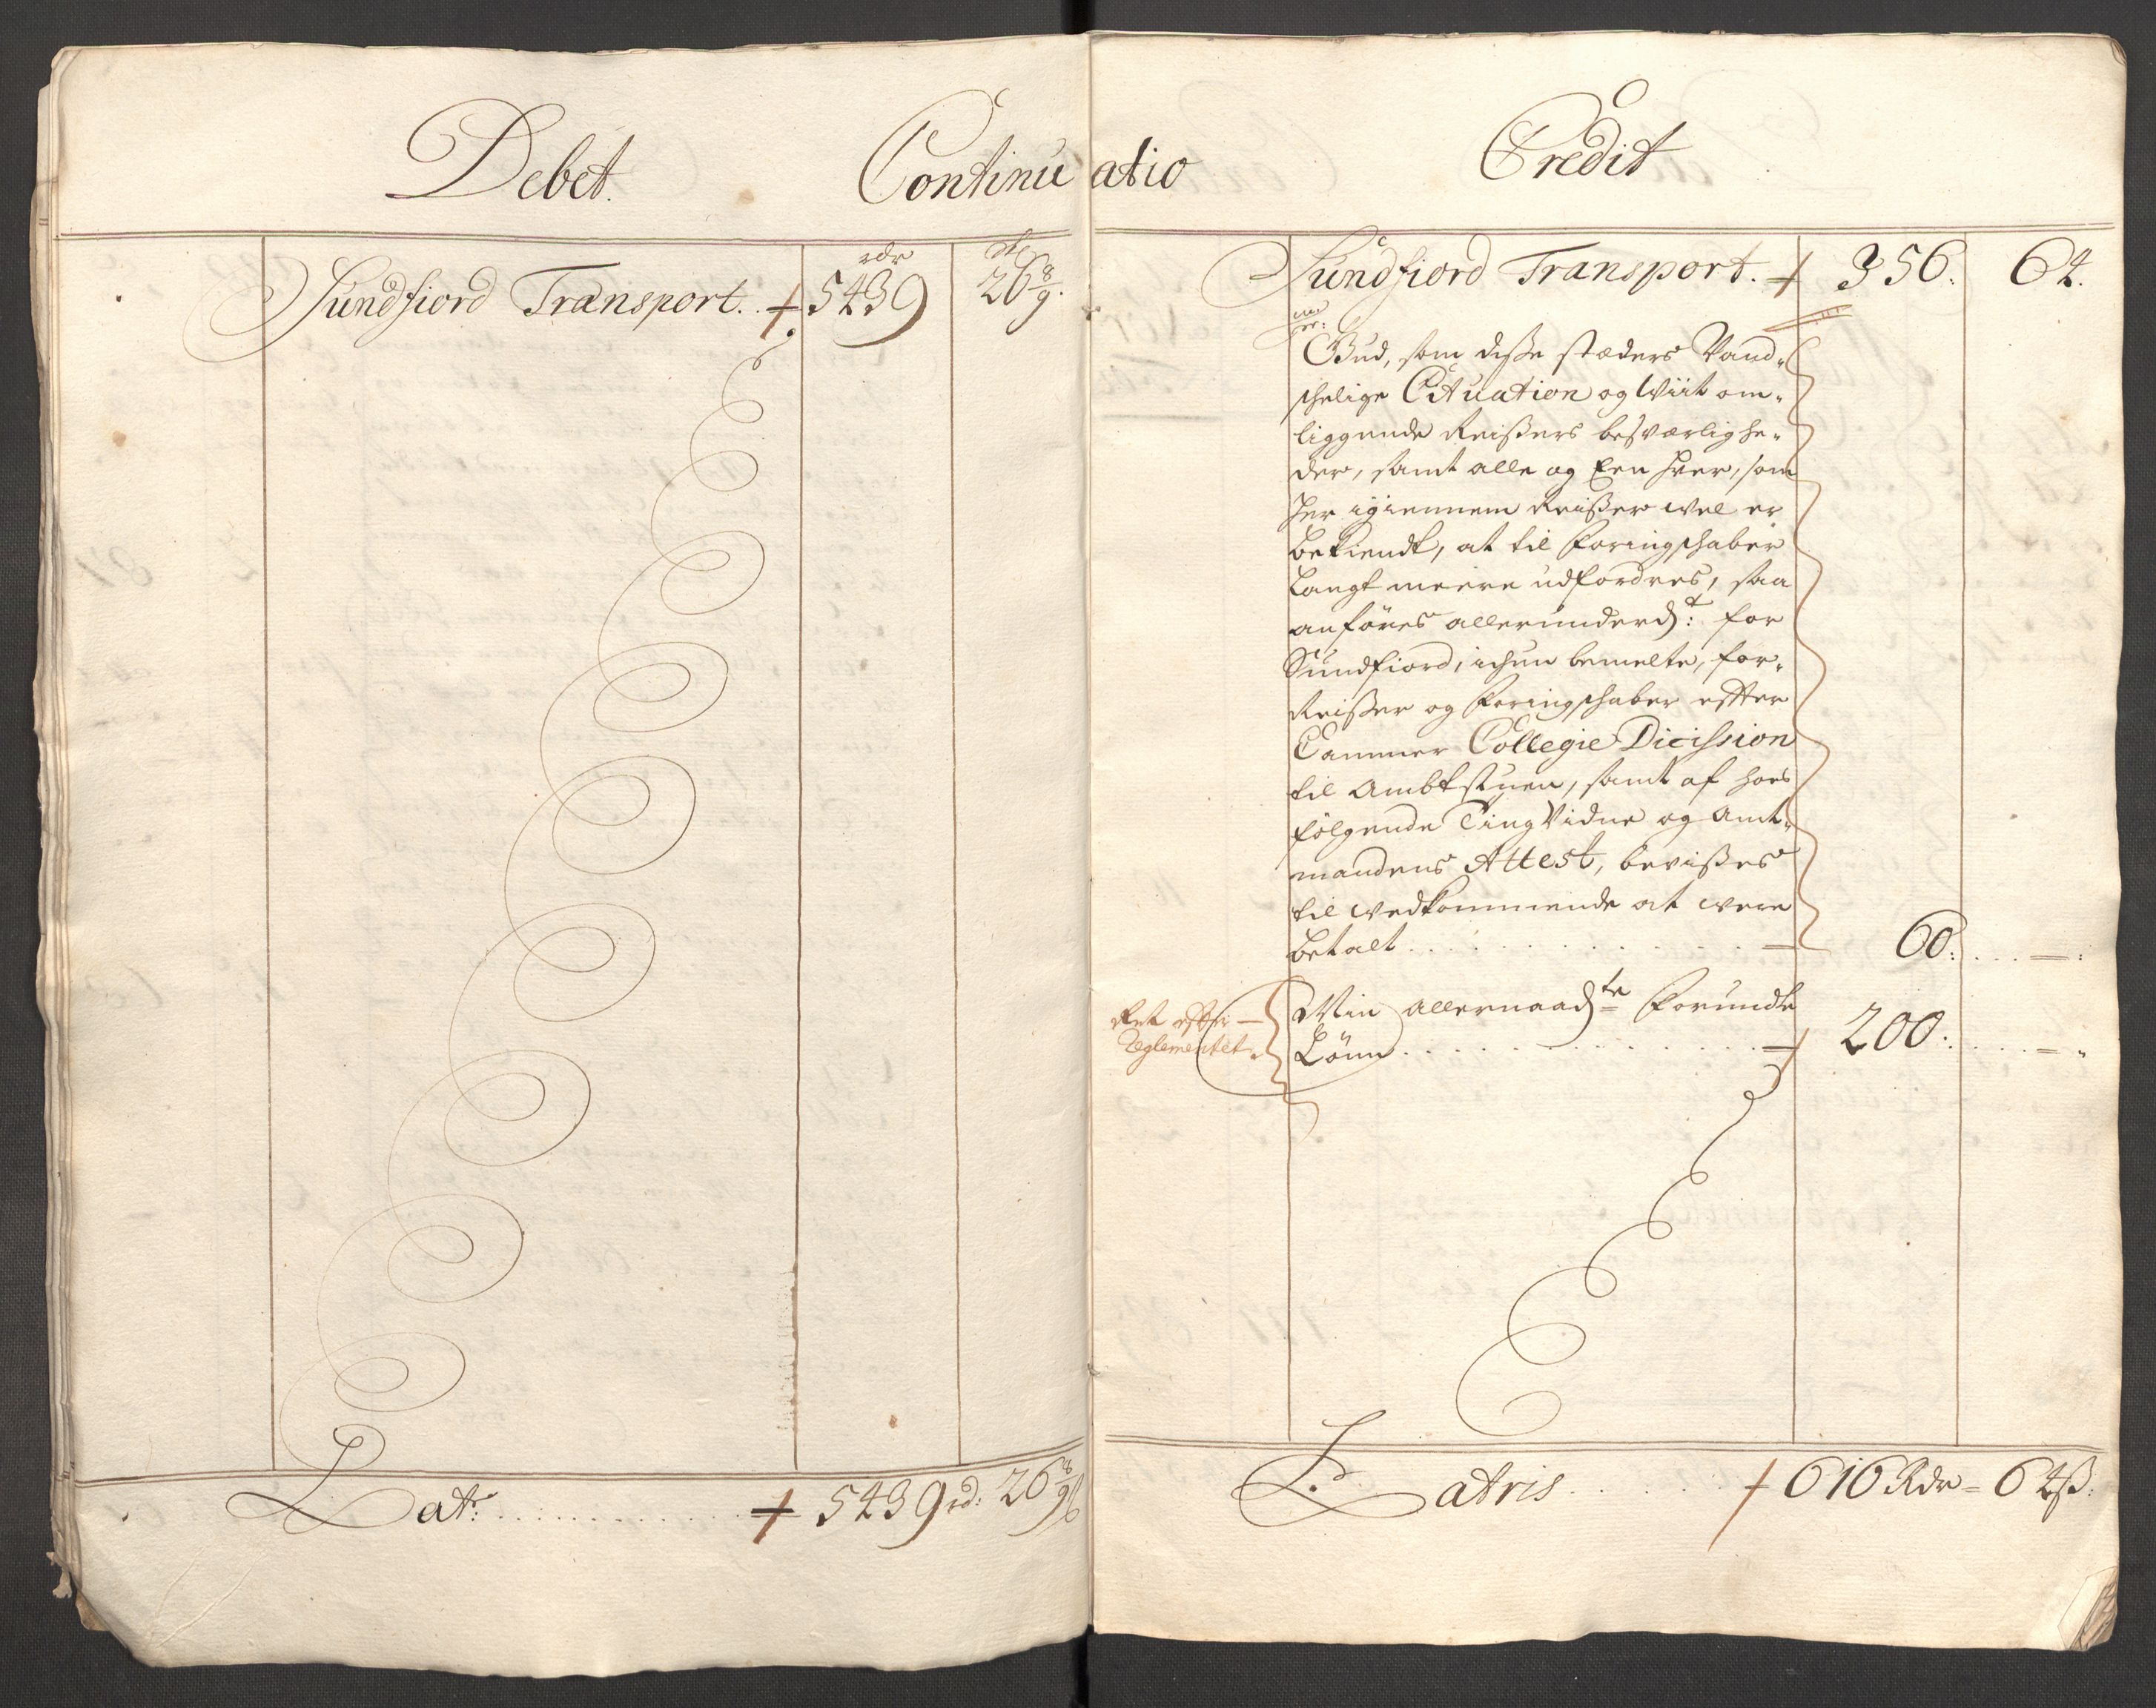 Debet.
Continu atio
Credit
rdr
Sundfiord Transport. 5439 26 8/9.
Lat: 5439 rd: 26 8/9 ß
Sundfiord Transport. 356. 64.
Bud, som disse stæders Vand-
schelige Cituation og Wiit om-
liggende Reißers besværlighe-
der, samt alle og Een hver, som
her igiennem Reißer vel er
bekiendt, at til foringschaber
langt meere udfordres, saa
anføres allerunderd.t: for
Sundfiord, ichun bemelte, for-
Reißer og foringschaber efter
Cammer Collegie Dicission
til Ambtstuen, samt af hoes
følgende Ting Vidne og Amt-
mandens Attest, bevißes
til vedkommende at vere
betalt 60:
Ret efter
Reglementet.
Min allernaad.te forundte
Lønn 200:
Latris 616 Rdr = 64 ß.